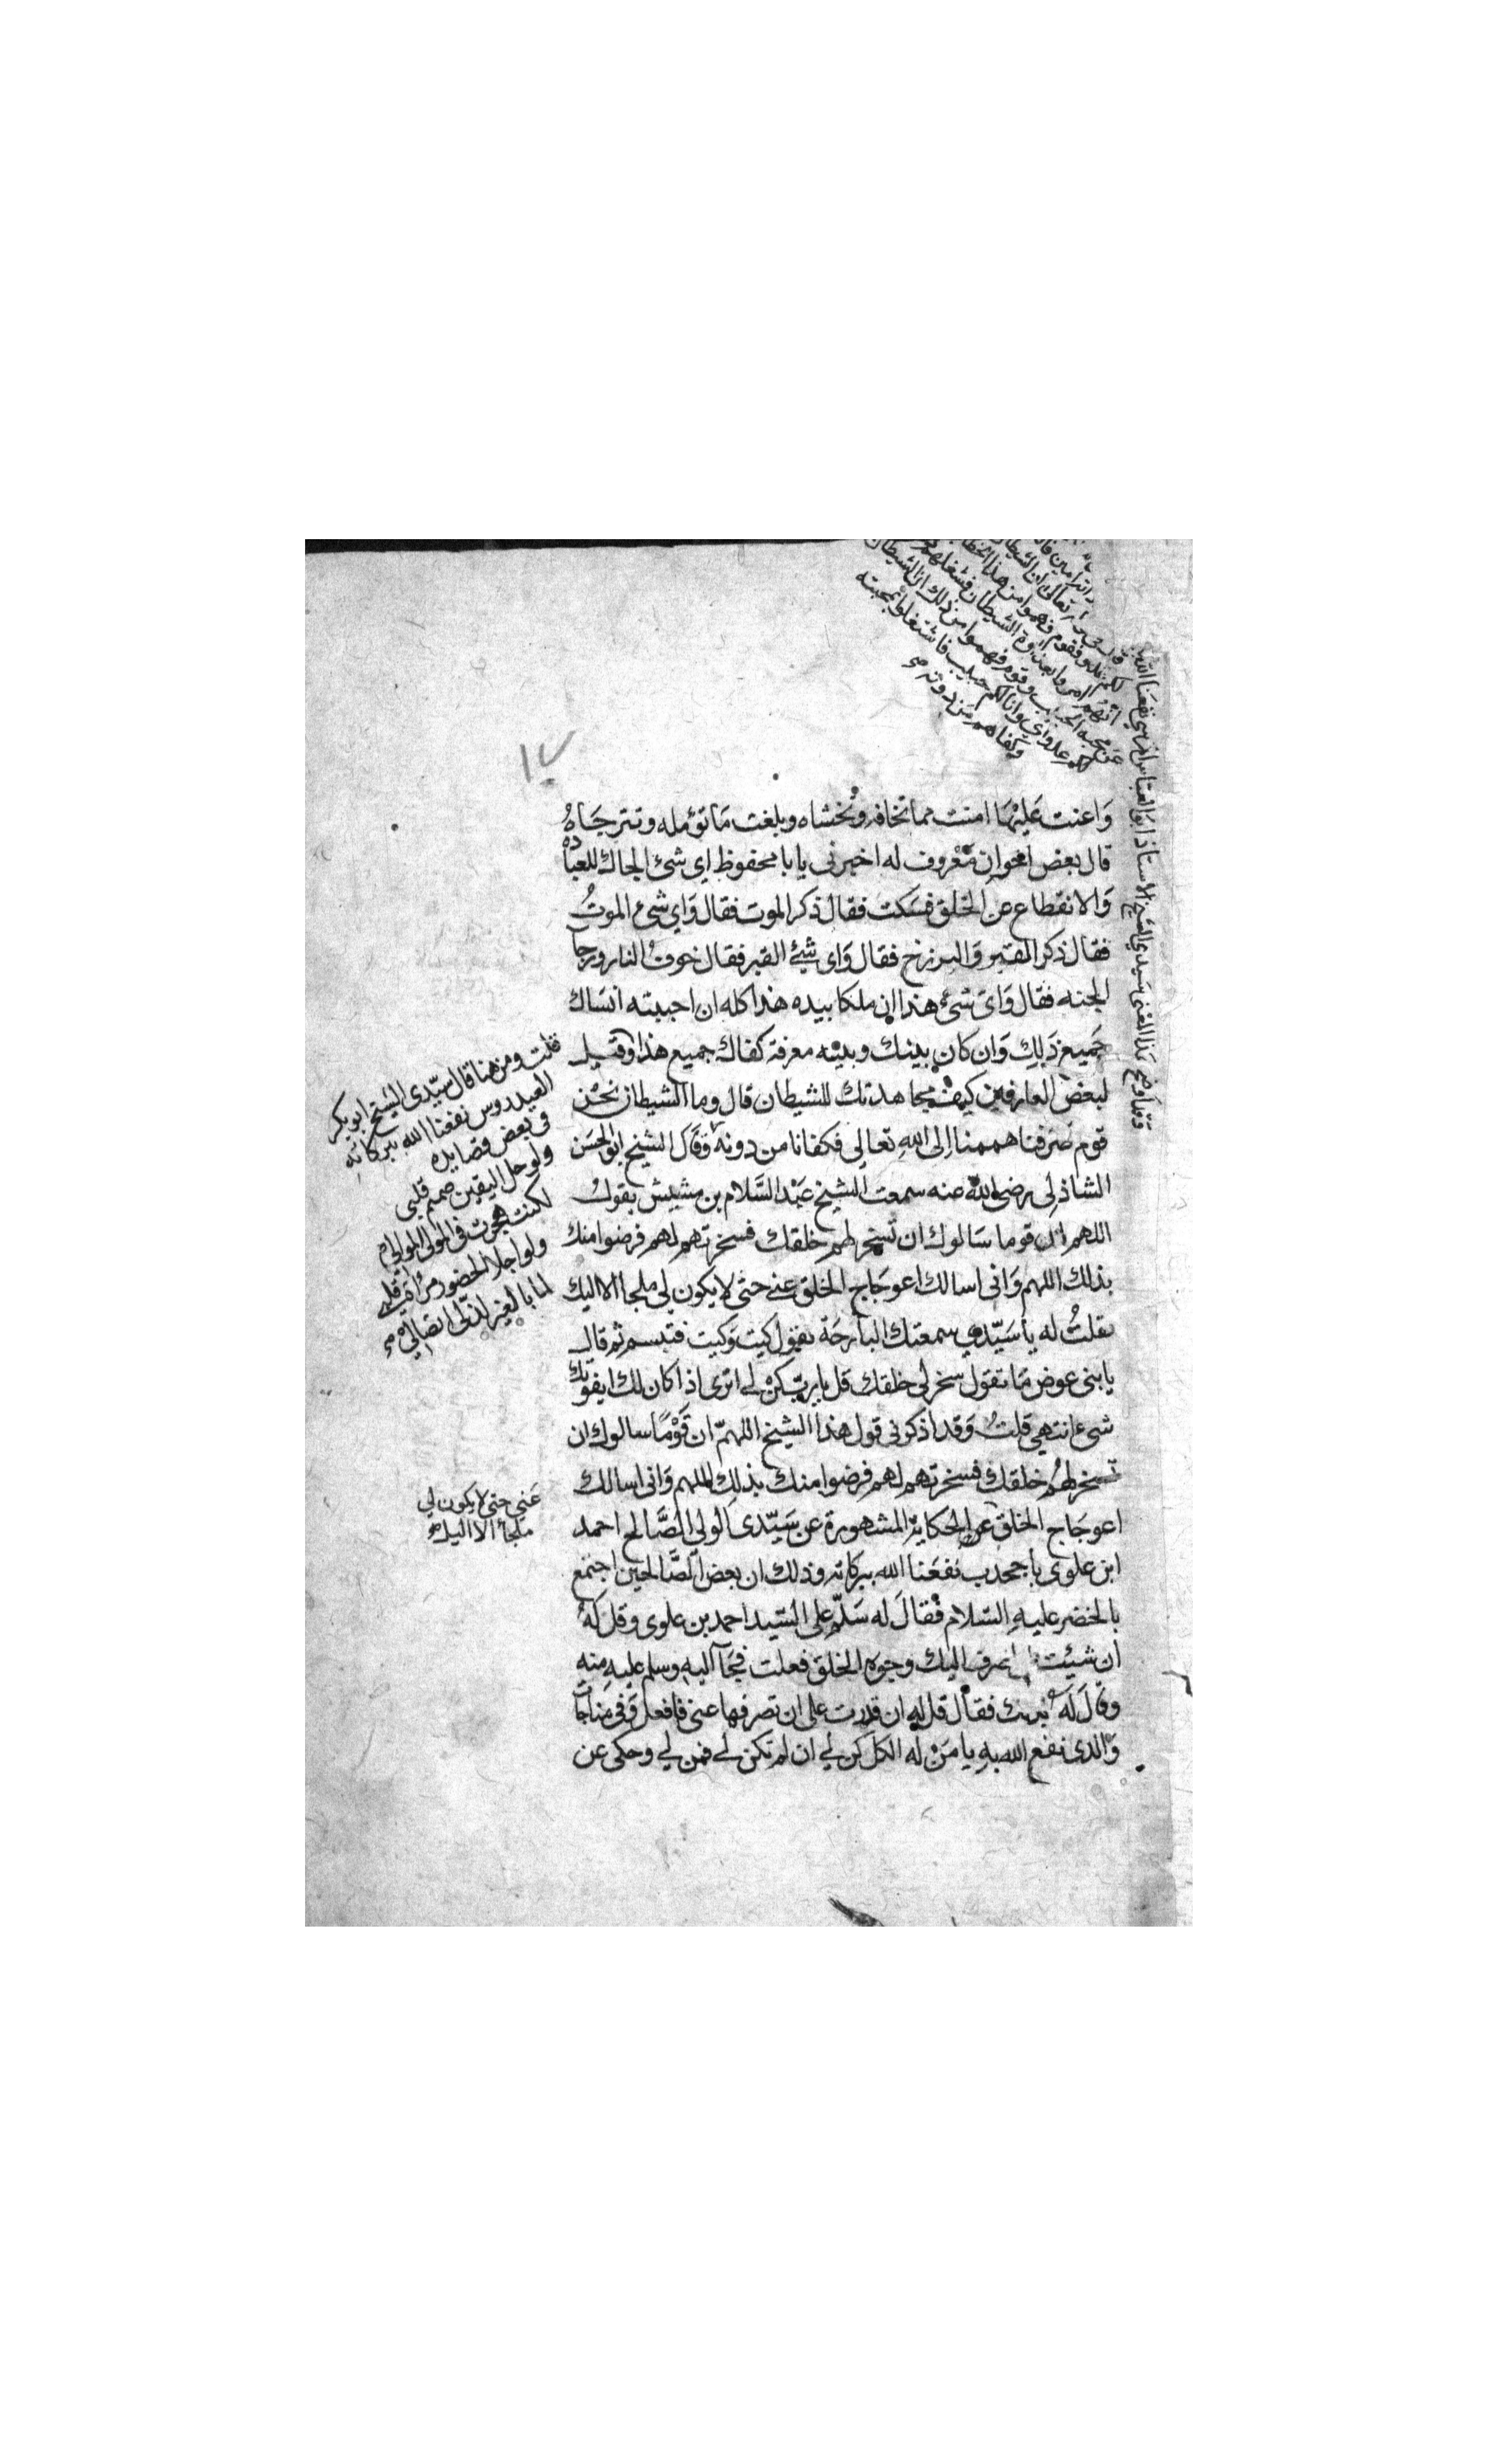 ١٧
واعنت عليها امنت مما تخافه وتخشاه وبلغت ما تؤمله وتترجاه
قال بعض اخوان معروف له اخبرني يا با محفوظ اي شئ الجاك للعباده
والانقطاع عن الخلق فسكت فقال ذكر الموت فقال واي شئ الموت
فقال ذكر المقبر والبرزخ فقال واى شئ القبر فقال خوف النار ورجا
الجنه فقال واى شئ هذا ان ملكا بيده هذا كله ان احببته انساك
جميع ذلك وان كان بينك وبينه معرفة كفاك جميع هذا وقيل
لبعض العارفين كيف مجاهدتك للشيطان قال وما الشيطان نحن
قوم صرفنا هممنا الى الله تعالى فكفانا من دونه وقال الشيخ ابو الحسن
الشاذلى رضى الله عنه سمعت الشيخ عبد السلام بن مشيش يقول
اللهم ان قوما سالوك ان تسخر لهم خلقك فسخرتهم لهم فرضوا منك
بذلك اللهم وانى اسالك اعوجاج الخلق عني حتى لا يكون لي ملجا الا اليك
فقلت له يا سيدي سمعتك البارحة تقول كيت وكيت فتبسم ثم قال
يا بنى عوض ما تقول سخر لى خلقك قل يا رب كن لي اترى اذا كان لك ايفوتك
شئ انتهي قلت وقد اذكرني قول هذا الشيخ اللهم ان قوما سالوك ان
تسخر لهم خلقك فسخرتهم لهم فرضوا منك بذلك اللهم وانى اسالك
اعوجاج الخلق عن الحكاية المشهورة عن سيدى الولي الصالح احمد
ابن علوى باجحدب نفعنا الله ببركاته وذلك ان بعض الصالحين اجتمع
بالخضر عليه السلام فقال له سلم على السيد احمد بن علوى وقل له
ان شيئت اليك وجوه الخلق فعلت فجآ اليه وسلم عليه منه
وقال له فقال قل له ان قدرت على ان تصرفها عني فافعل وفي مناجات
والدى نفع الله به يا من له الكل كن لي ان لم تكن لي فمن لي وحكى عن
قلت ومن هنا قال سيدى الشيخ ابو بكر
العيدروس نفعنا الله ببركاته
في بعض قصايده
ولو حل اليقين صميم قلبي
لكنت هجرت فى المولى الموالي
ولو اجلا الحضور
لما بالغير لذ لى اتصالي
عني حتى لا يكون لي
ملجأ الا اليك
وقد اوضح هذا المعنى سيدي الشيخ الاستاذ ابو العباس المرسي نفعنا الله
لكم عدو فقوم فهموا من هذا الخطاب
عن محبة الحبيب وقوم فهموا من ذلك ان الشيطان
عدواي وانا لكم حبيب فاشتغلوا بمحبته
وكفاهم من دونه